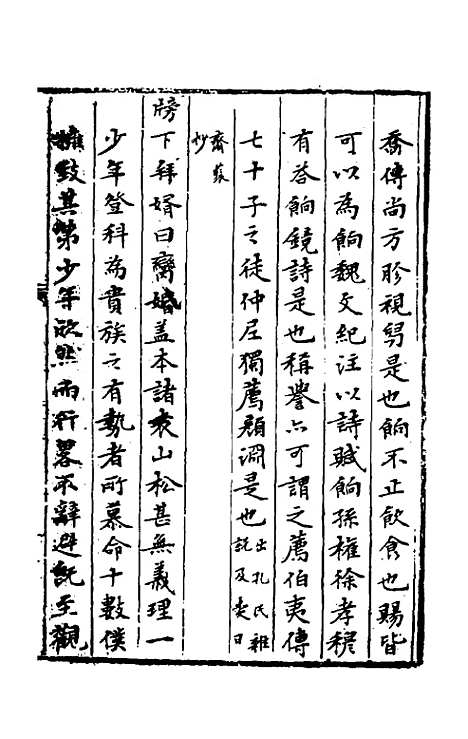 喬傳尚方眕視舄是也餉不止飲食也賜皆
可以為餉魏文紀注以詩賦餉孫權徐孝穆
有荅餉鏡詩是也稱譽亦可謂之薦伯夷傳
七十子之徒仲尼獨薦顏淵是也出孔氏雜說及賣日
齋裴抄
牓下拜婿曰臠婚盖本諸袁山松甚無義理一
少年登科為貴族之有勢者所慕命十數僕
擁致其第少年欣然而行畧不辭避既至觀